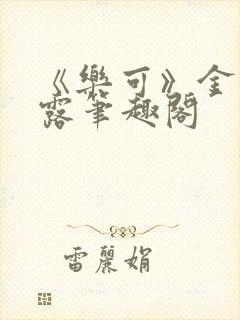 《樂可》金
露筆趣閣
雷麗娟